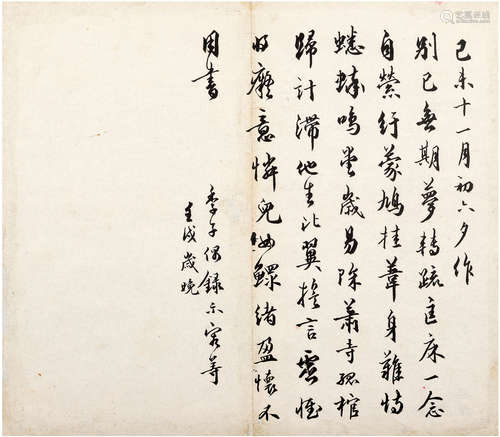 己未十一月初六夕作
別已無期夢轉疏匡床一念
自縈紆蒙鳩挂葦身難恃
蟋蟀鳴堂歲易除蕭寺孤棺
歸計滯他生比翼言虛惟
將癡意憐兒女鰥緒盈懷不
用書
季子偶錄示等
壬戌歲晚